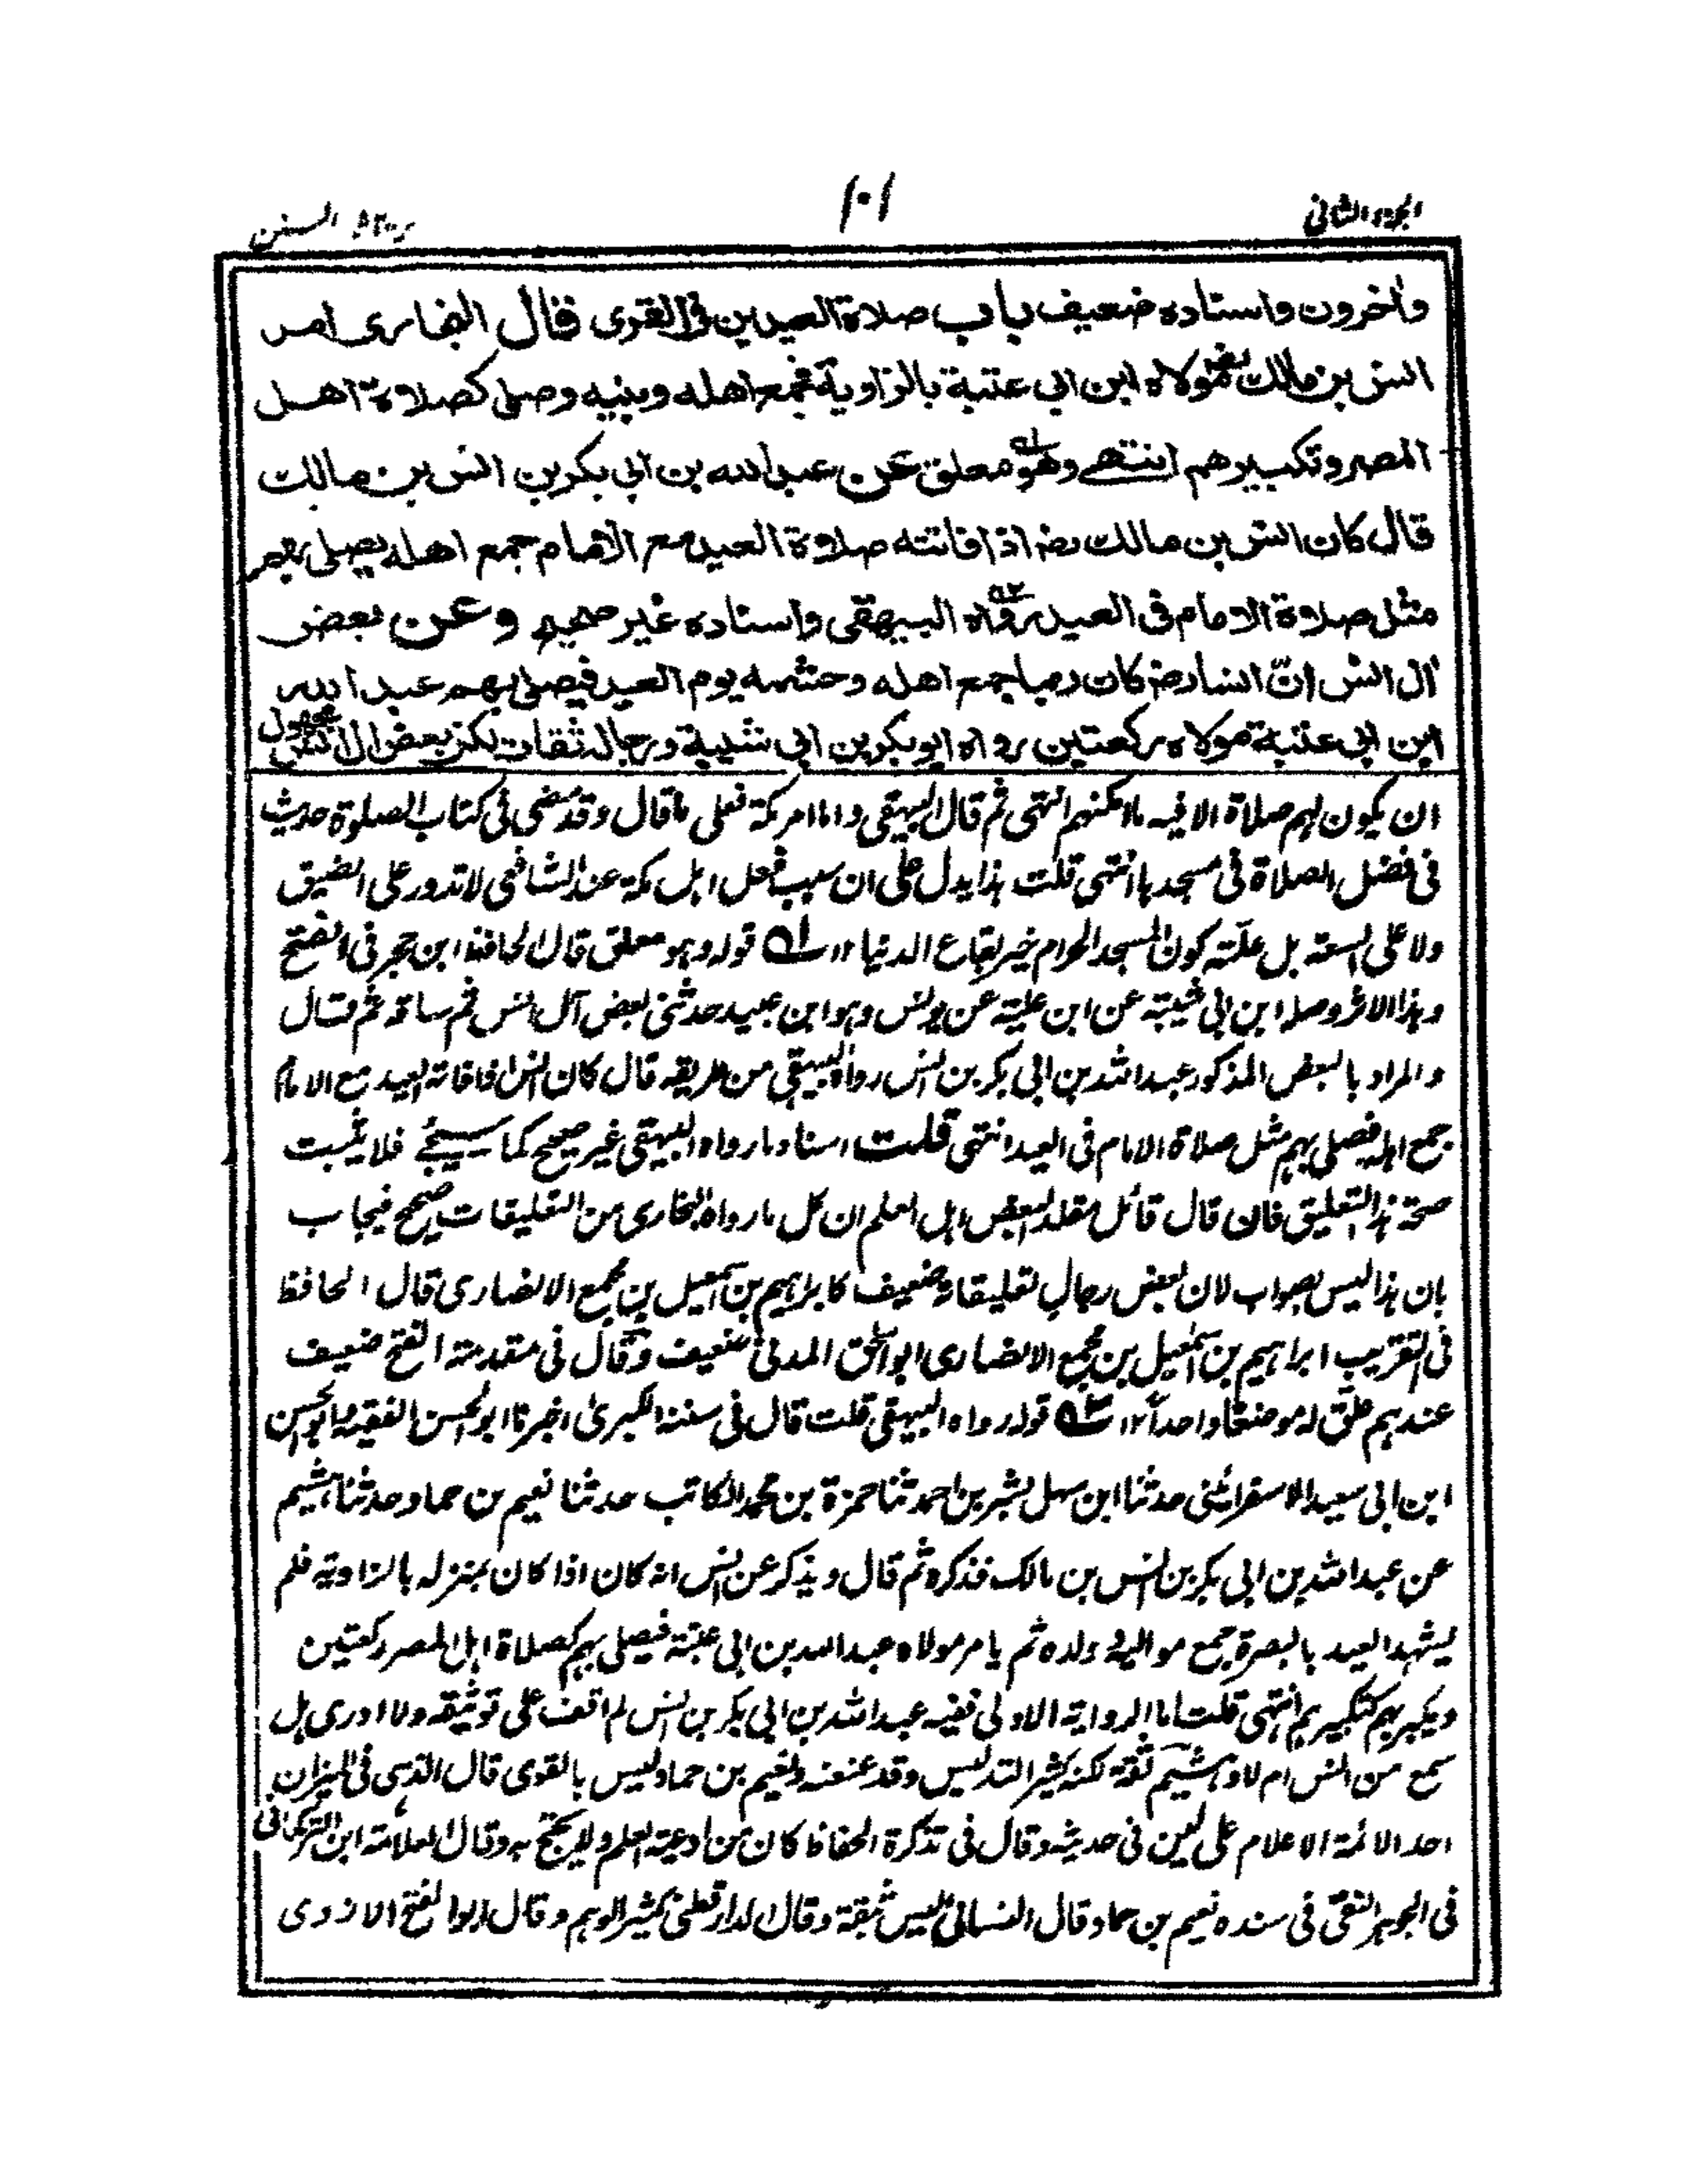 الجزء الثانى
١٠١
السنن
وآخرون واسناده ضعيف باب صلاة العيدين فى القرى قال البخارى امر
انس بن مالك رض مولاه ابن ابى عتبة بالزاوية فجمع اهله وبنيه وصلى كصلاة اهل
المصر وتكبيرهم انتهى وهو معلق عن عبد الله بن ابى بكر بن انس بن مالك
قال كان انس بن مالك رض اذا فاتته صلاة العيد مع الامام جمع اهله يصلى بهم
مثل صلاة الامام فى العيد رواه البيهقى واسناده غير صحيح وعن بعض
آل انس انّ انسا رض كان ربما جمع اهله وحشمه يوم العيد فيصلى بهم عبد الله
ابن ابى عتبة مولاه ركعتين رواه ابو بكر بن ابى شيبة ورجاله ثقات لكن بعض آل انس مجهول
ان يكون لهم صلاة الا فيه ما امكنهم انتهى ثم قال البيهقى واما امر مكة فعلى ما قال وقد مضى فى كتاب الصلوة حديث
فى فضل الصلاة فى مسجدها انتهى قلت هذا يدل على ان سبب فعل اهل مكة عن الشافعى لا تدور على الضيق
ولا على السعة بل علّته كون المسجد الحرام خير بقاع الدنيا ١٢ ‎١‎ قوله وهو معلق قال الحافظ ابن حجر فى الفتح
وهذا الاثر وصله ابن ابى شيبة عن ابن علية عن يونس وهو ابن عبيد حدثنى بعض آل انس ثم ساقه ثم قال
والمراد بالبعض المذكور عبد الله بن ابى بكر بن انس رواه البيهقى من طريقه قال كان انس اذا فاته العيد مع الامام
جمع اهله فيصلى بهم مثل صلاة الامام فى العيد انتهى قلت اسناد ما رواه البيهقى غير صحيح كما سيجئ فلا يثبت
صحة هذا التعليق فان قال قائل مقلد البعض اهل العلم ان كل ما رواه البخارى من التعليقات صحيح فيجاب
بان هذا ليس بصواب لان بعض رجال تعليقاته ضعيف كابراهيم بن اسمعيل بن مجمع الانصارى قال الحافظ
فى التقريب ابراهيم بن اسمعيل بن مجمع الانصارى ابو اسحق المدنى ضعيف وقال فى مقدمة الفتح ضعيف
عندهم علق له موضعًا واحداً ١٢ ‎٢‎ قوله رواه البيهقى قلت قال فى سننه الكبرىٰ اخبرنا ابو الحسن الفقيه وابو الحسن
ابن ابى سعيد الاسفرائنى حدثنا ابن سهل بشر بن احمد ثنا حمزة بن محمد الكاتب حدثنا نعيم بن حماد حدثنا هشيم
عن عبد الله بن ابى بكر بن انس بن مالك فذكره ثم قال ويذكر عن انس انه كان اذا كان بمنزله بالزاوية فلم
يشهد العيد بالبصرة جمع مواليه وولده ثم يامر مولاه عبد الله بن ابى عتبة فيصلى بهم كصلاة اهل المصر ركعتين
ويكبر بهم كتكبيرهم انتهى قلت اما الرواية الاولى ففيه عبد الله بن ابى بكر بن انس لم اقف على توثيقه ولا ادرى هل
سمع من انس ام لا وهشيم ثقة لكنه كثير التدليس وقد عنعنه ونعيم بن حماد ليس بالقوى قال الذهبى فى الميزان
احد الائمة الاعلام على لين فى حديثه وقال فى تذكرة الحفاظ كان من اوعية العلم ولا يحتج به وقال العلامة ابن التركمانى
فى الجوهر النقى فى سنده نعيم بن حماد قال النسائى ليس بثقة وقال الدارقطنى كثير الوهم وقال ابو الفتح الازدى